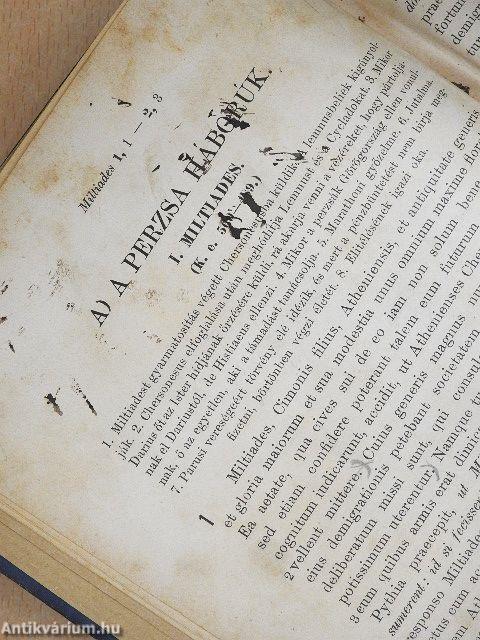 Miltiades 1, 1 — 2, 3
A) A PERZSA HÁBORÚK.
I. MILTIADES.
(K. e.
1. Miltiadest gyarmatosítás végett Chersonesusba küldik. A lemnusbeliek kigúnyol-
ják. 2. Chersonesus elfoglalása után meghódítja Lemnust és a Cycladokat. 3. Mikor
Darius őt az Ister hídjának őrzésére küldi, rá akarja venni a vezéreket, hogy pártolja-
nak el Dariustól, de Histiaeus ellenzi. 4. Mikor a perzsák Görögország ellen vonul-
nak, ő az egyetlen, aki a támadást tanácsolja. 5. Marathoni győzelme. 6. Jutalma.
7. Parusi vereségeért törvény elé idézik, és mert a pénzbüntetést nem bírja meg-
fizetni, börtönben végzi életét. 8. Elítélésének igazi oka.
1 Miltiades, Cimonis filius, Atheniensis, et antiquitate generis
et gloria maiorum et sua modestia unus omnium maxime flor
Ea aetate, qua cives sui de eo iam non solum bene
sed etiam confidere poterant talem eum futurum
cognitum indicarunt, accidit, ut Athenienses Cher
2 vellent mittere. Cuius generis magnus nu
eius demigrationis petebant societatem
deliberatum missi sunt, qui consul
potissimum uterentur. Namque tu
3 eum quibus armis erat dimic
Pythia praecepit, ut M
sumerent: id si fecisse
esponso Miltiade
tus cum ac
do
prae
fortun
demig
Antikvárium.hu